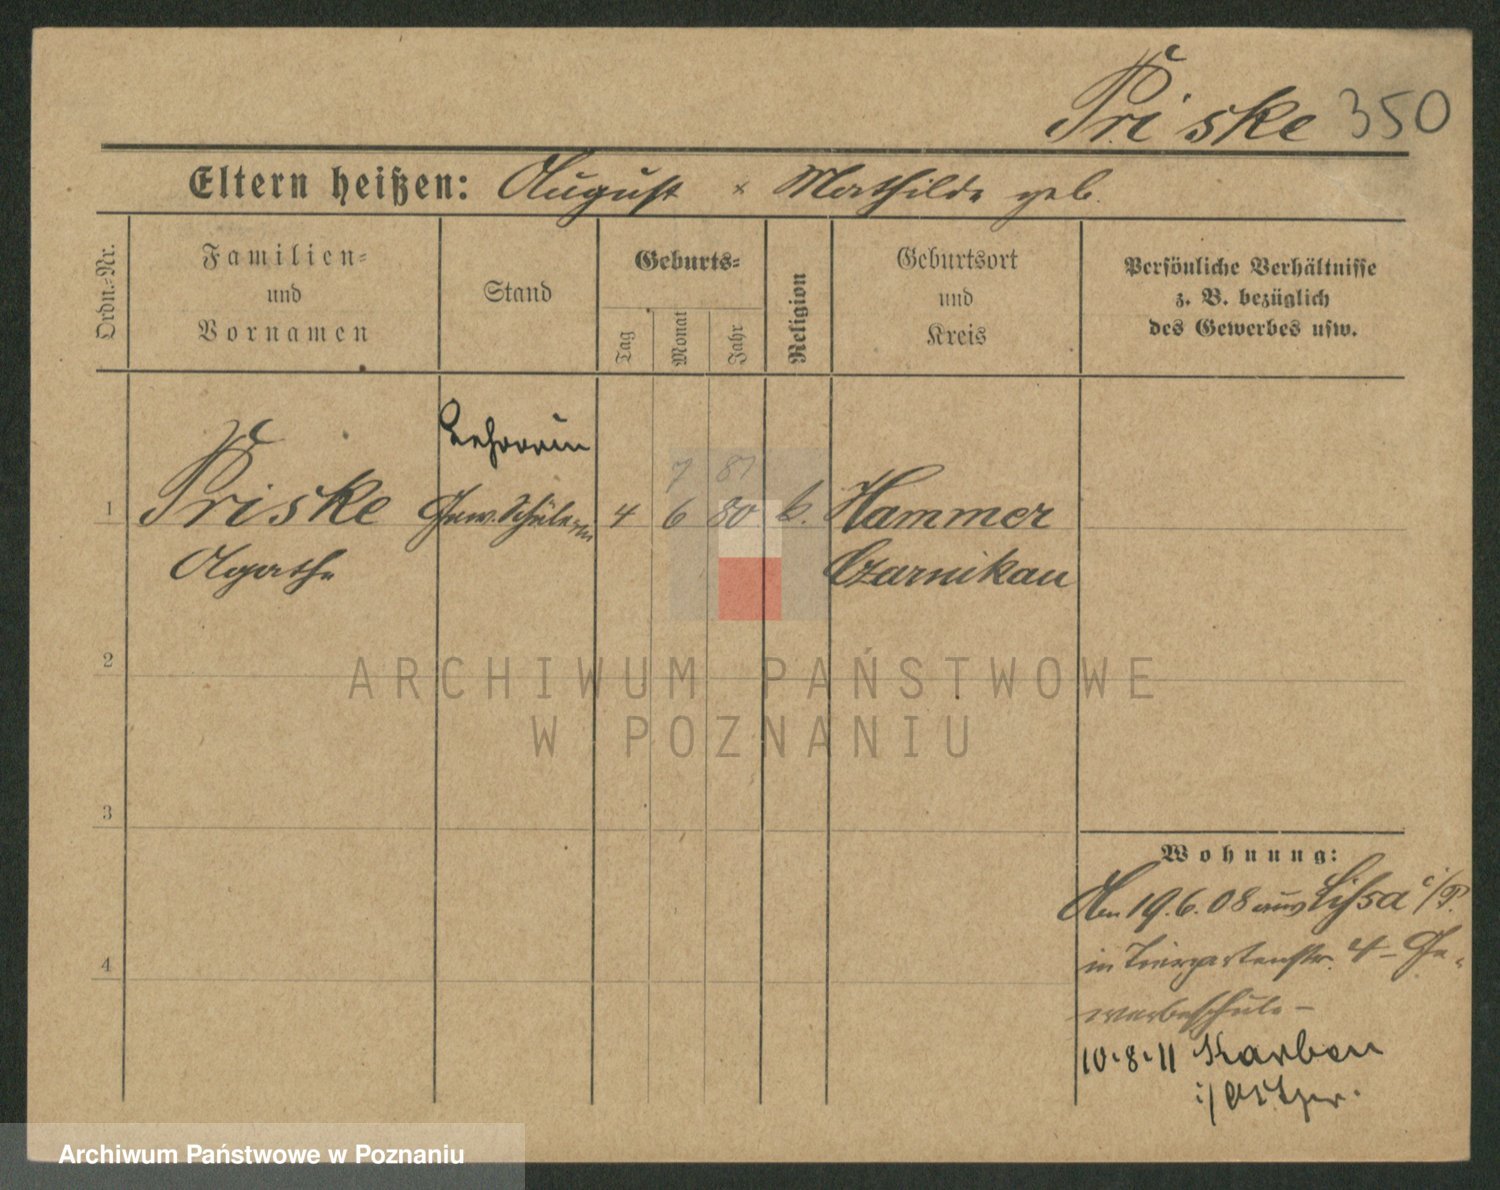 Priske 350
Eltern heißen: August x Mathilde geb.
Ordn.-Nr.
Familien-
und
Vornamen
Stand
Geburts-
Tag
Monat
Jahr
Religion
Geburtsort
und
Kreis
Persönliche Verhältnisse
z. B. bezüglich
des Gewerbes usw.
Lehrerin
7 87
1 Priske Gew. Schülerin 4 6 80 k. Hammer
Agathe Czarnikau
2
ARCHIWUM PAŃSTWOWE
W POZNANIU
3
Wohnung:
Den 19.6.08 aus Lissa i/P.
4 in Tiergartenstr. 4 – Ge-
werbeschule –
10.8.11 Karben
Archiwum Państwowe w Poznaniu